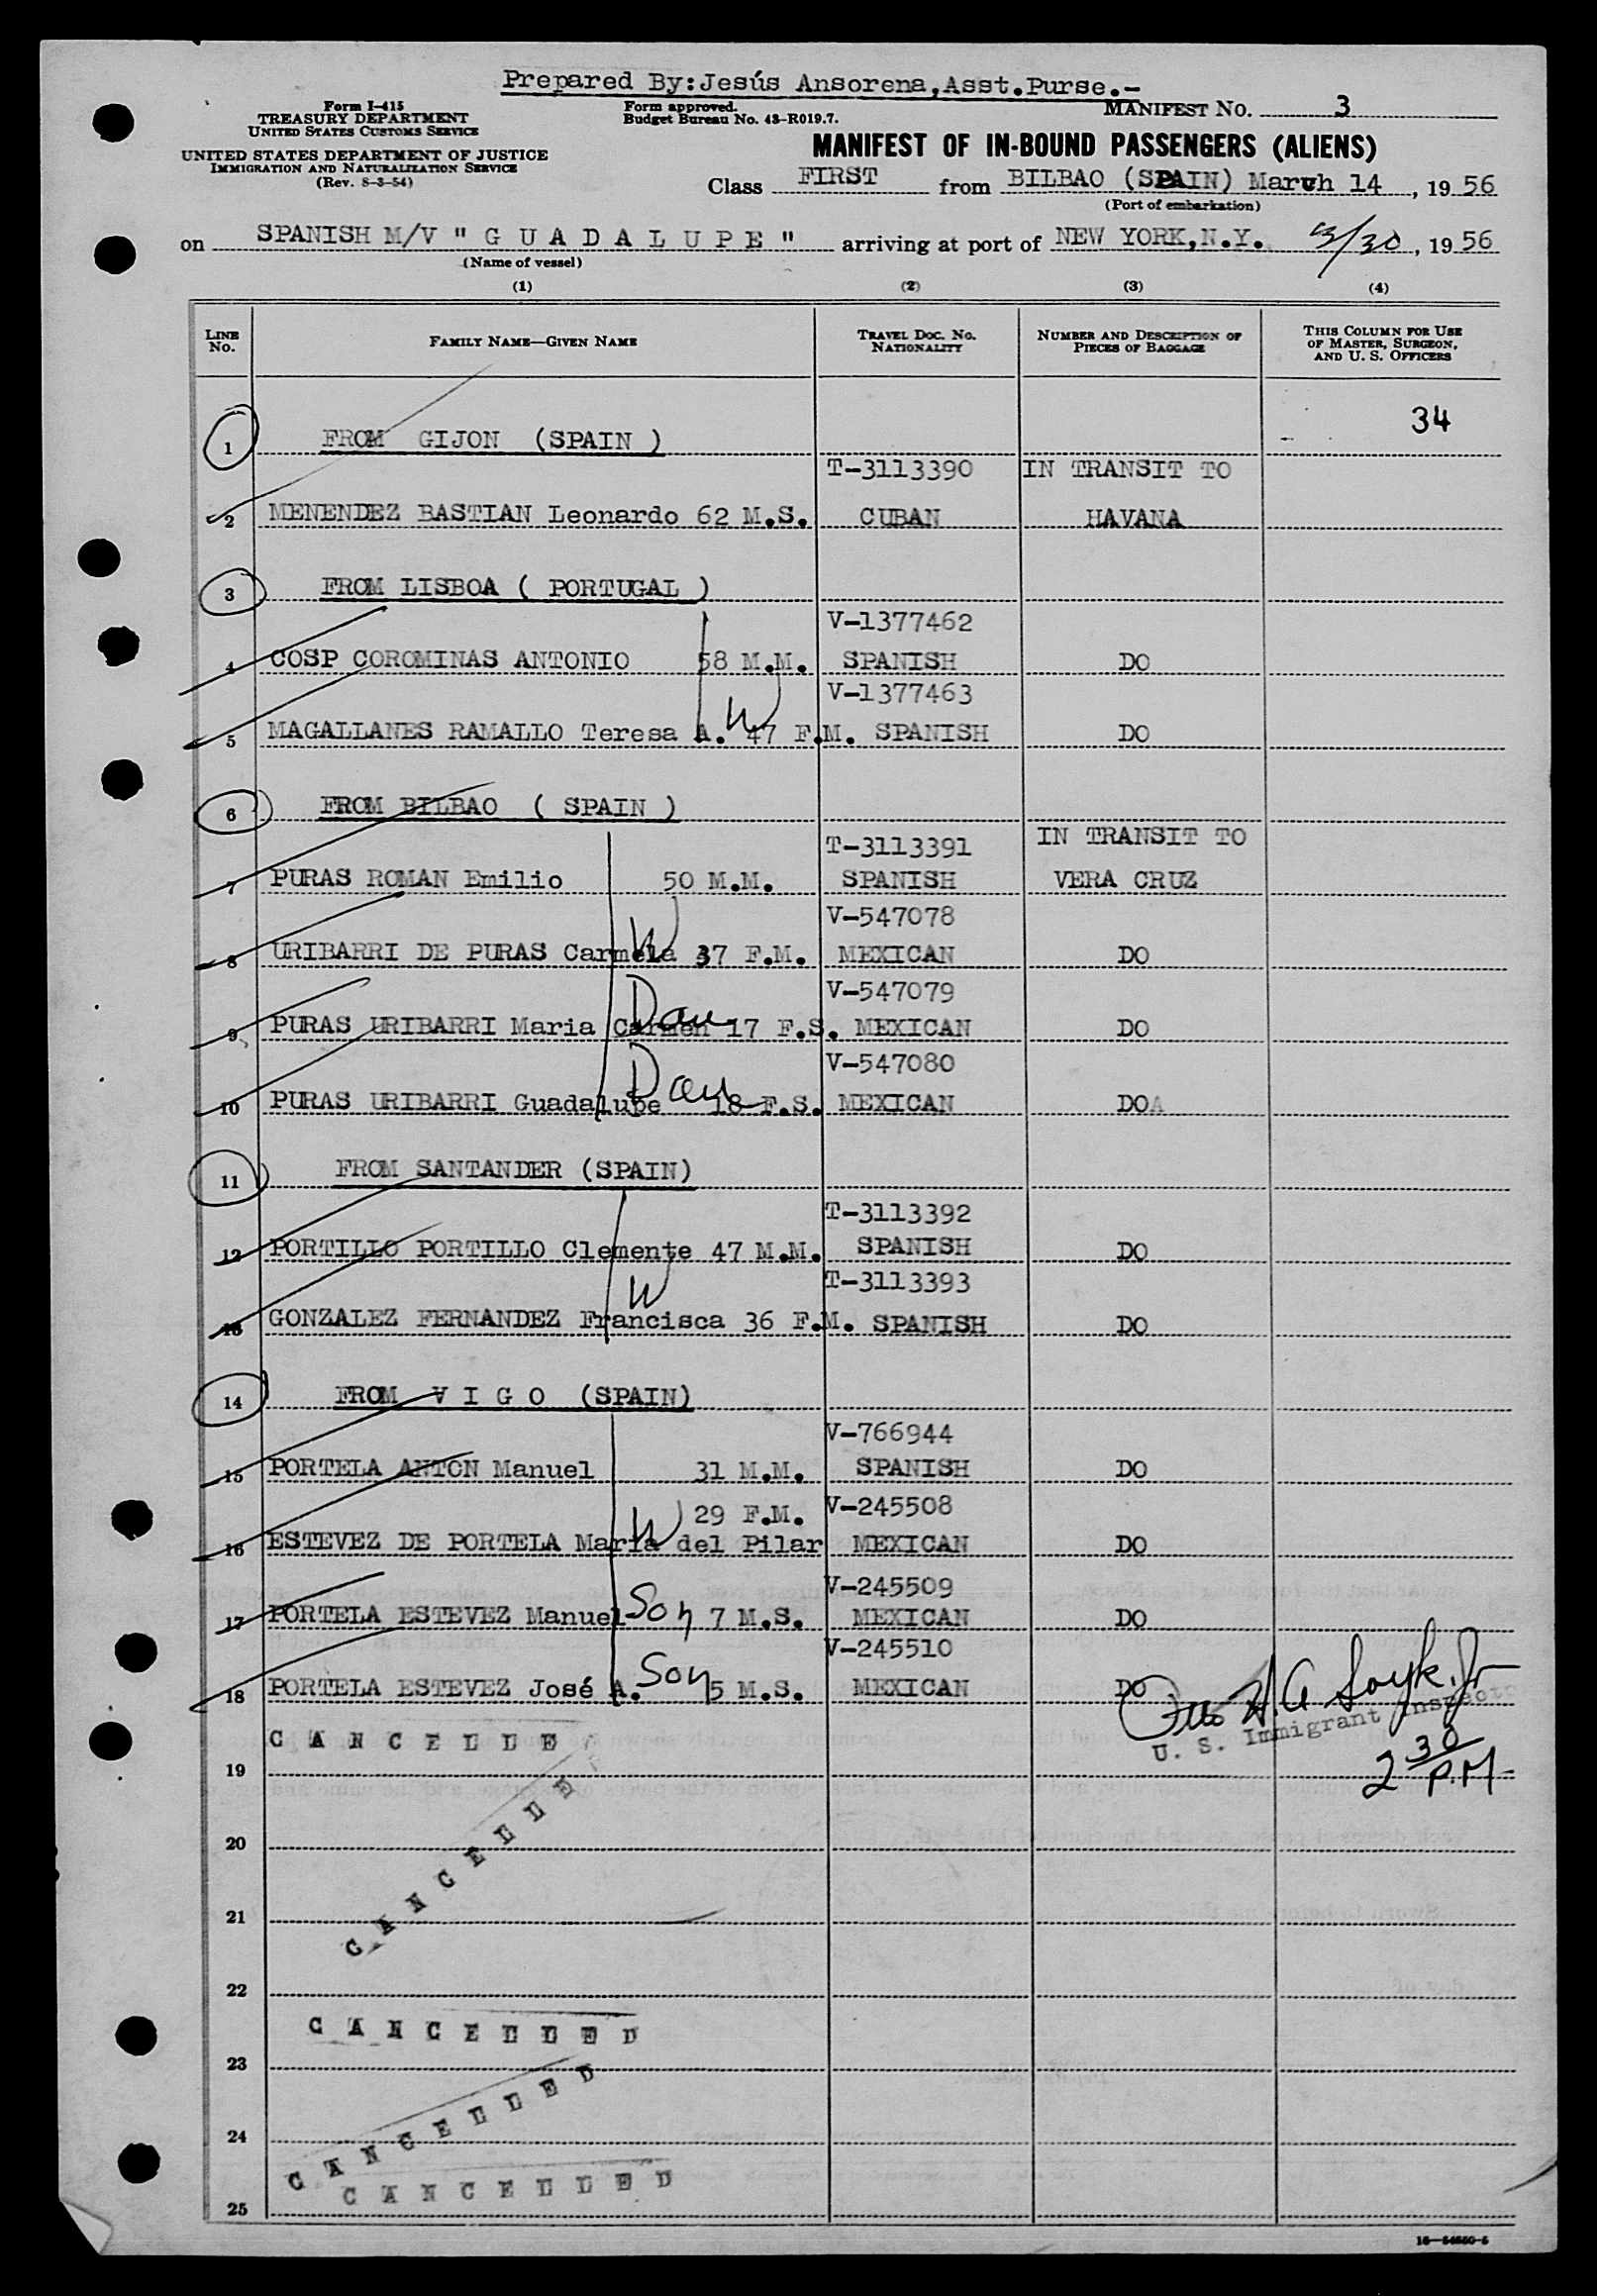 Prepared By:Jesús Ansorena,Asst.Purse.-
Form I-415
TREASURY DEPARTMENT
UNITED STATES CUSTOMS SERVICE
UNITED STATES DEPARTMENT OF JUSTICE
IMMIGRATION AND NATURALIZATION SERVICE
(Rev. 8-3-54)
Form approved.
Budget Bureau No. 43-R019.7.
MANIFEST No. 3
MANIFEST OF IN-BOUND PASSENGERS (ALIENS)
Class FIRST from BILBAO (SPAIN) March 14, 1956
(Port of embarkation)
on SPANISH M/V " G U A D A L U P E " arriving at port of NEW YORK,N.Y. 3/30, 1956
(Name of vessel)
(1) (2) (3) (4)
LINE No. FAMILY NAME—GIVEN NAME TRAVEL DOC. No. NATIONALITY NUMBER AND DESCRIPTION OF PIECES OF BAGGAGE THIS COLUMN FOR USE OF MASTER, SURGEON, AND U. S. OFFICERS
34
1 FROM GIJON (SPAIN )
T-3113390 IN TRANSIT TO
2 MENENDEZ BASTIAN Leonardo 62 M.S. CUBAN HAVANA
3 FROM LISBOA ( PORTUGAL )
V-1377462
4 COSP COROMINAS ANTONIO 58 M.M. SPANISH DO
V-1377463
5 MAGALLANES RAMALLO Teresa A. W 47 F.M. SPANISH DO
6 FROM BILBAO ( SPAIN )
T-3113391 IN TRANSIT TO
7 PURAS ROMAN Emilio 50 M.M. SPANISH VERA CRUZ
V-547078
8 URIBARRI DE PURAS Carmela W 37 F.M. MEXICAN DO
V-547079
9 PURAS URIBARRI Maria Carmen Dau 17 F.S. MEXICAN DO
V-547080
10 PURAS URIBARRI Guadalupe Dau 18 F.S. MEXICAN DO
11 FROM SANTANDER (SPAIN)
T-3113392
12 PORTILLO PORTILLO Clemente 47 M.M. SPANISH DO
W T-3113393
13 GONZALEZ FERNANDEZ Francisca 36 F.M. SPANISH DO
14 FROM V I G O (SPAIN)
V-766944
15 PORTELA ANTON Manuel 31 M.M. SPANISH DO
W 29 F.M. V-245508
16 ESTEVEZ DE PORTELA Maria del Pilar MEXICAN DO
V-245509
17 PORTELA ESTEVEZ Manuel Son 7 M.S. MEXICAN DO
V-245510
18 PORTELA ESTEVEZ José A. Son 5 M.S. MEXICAN DO
U. S. Immigrant Inspector
2 30 P.M.
C A N C E L L E
19
C A N C E L L E
20
21
22
C A N C E L L E D
23
C A N C E L L E D
24
C A N C E L L E D
25